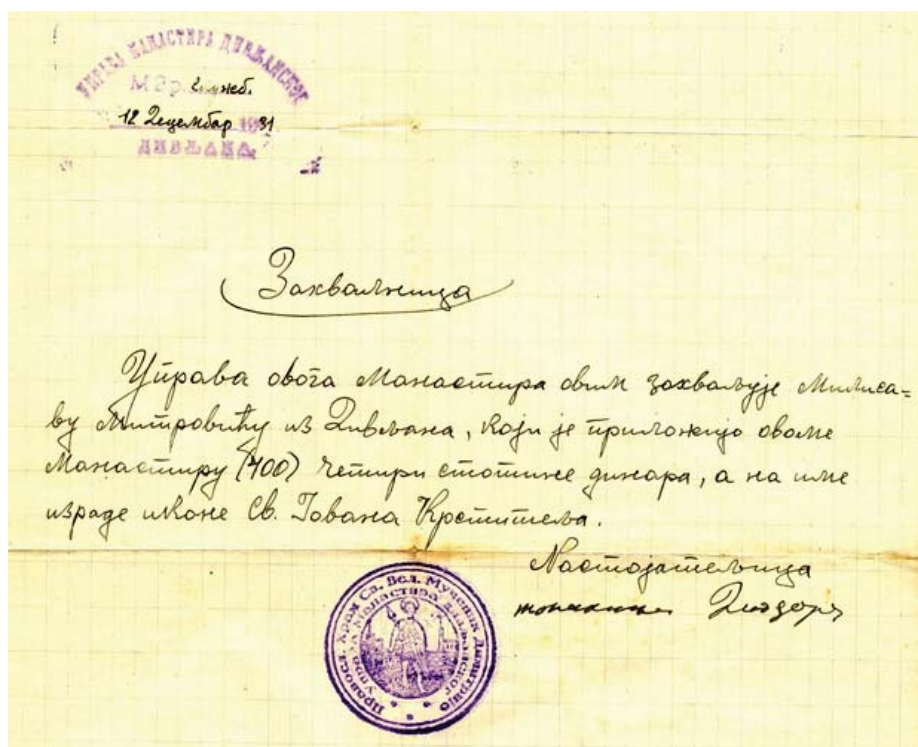 УПРАВА МАНАСТИРА ДИВЉАНСКОГ
М Бр. Служб.
12 Децембар 1931
ДИВЉАНА
Захвалница
Управа овога Манастира овим захваљује Милиса=
ву Митровићу из Дивљана, који је приложио овоме
Манастиру (400) четири стотине динара, а на име
израде иконе Св. Јована Крститеља.
Настојатељица
монахиња
Правосл. Храм Св. Вел. Мученик Димитрије
Управа Манастира Дивљанског